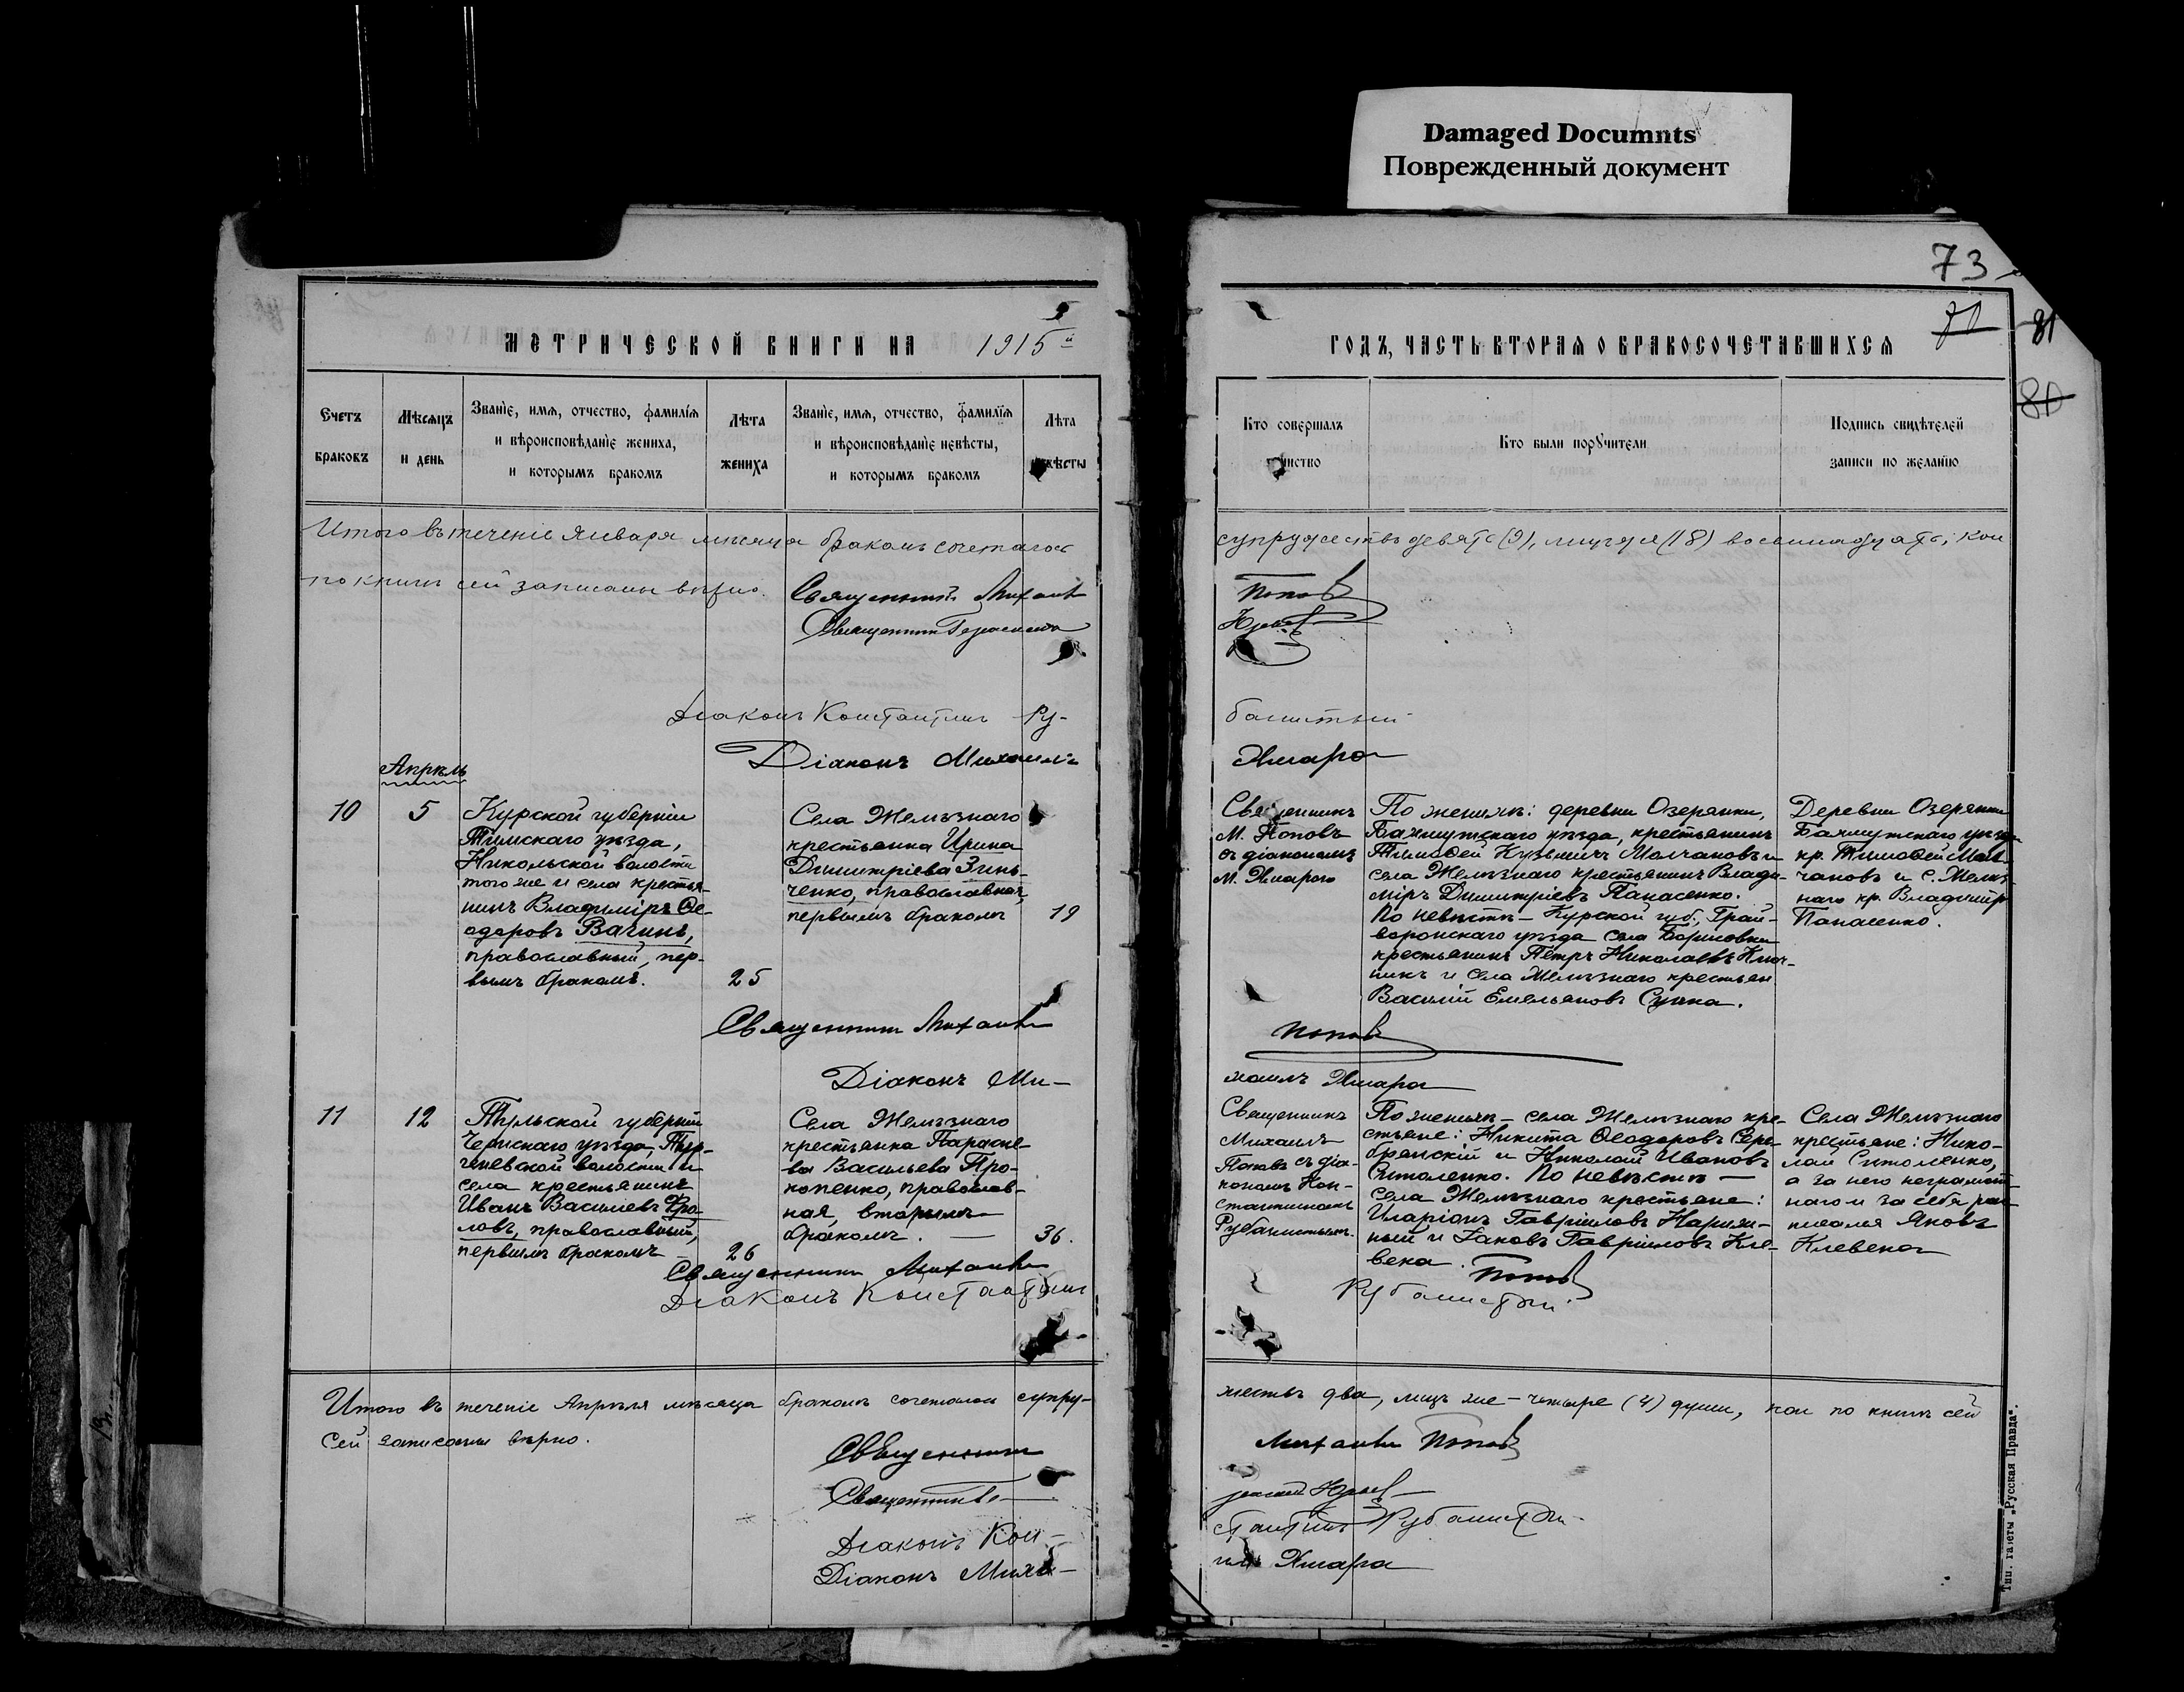 Damaged Documnts
Поврежденный документ
73
81
81
80
МЕТРИЧЕСКОЙ КНИГИ НА 1915й
ГОДЪ, ЧАСТЬ ВТОРАЯ О БРАКОСОЧЕТАВШИХСЯ
Счетъ браковъ
Мѣсяцъ и день
Званіе, имя, отчество, фамилія
и вѣроисповѣданіе жениха,
и которымъ бракомъ
Лѣта жениха
Званіе, имя, отчество, фамилія
и вѣроисповѣданіе невѣсты,
и которымъ бракомъ
Лѣта
Кто совершалъ
Кто были поручители
Подпись свидѣтелей
записи по желанію
Итого въ теченіе Января мѣсяца бракомъ сочеталось
супружествъ девять (9), лицъ же (18) восемнадцать; кои
по книгѣ сей записаны вѣрно.
Священникъ Михаилъ
Попов
Священникъ
Діаконъ Константинъ Ру-
банистый
Діаконъ Михаилъ
Хмара
Апрѣль
10
5
Курской губерніи
Тимскаго уѣзда,
Никольской волости
того же и села крестья-
нинъ Владиміръ Ѳе-
одоровъ Вагинъ,
православный, пер-
вымъ бракомъ.
25
Села Желѣзнаго
крестьянка Ирина
Димитріева Зинь-
ченко, православная,
первымъ бракомъ
19
М. Поповъ
съ діакономъ
М. Хмарою
По женихѣ: деревни Озеряни,
Бахмутскаго уѣзда, крестьянинъ
Тимоѳей Кузьмичъ Молчановъ и
села Желѣзнаго крестьянинъ Влади-
міръ Димитріевъ Панасенко.
По невѣстѣ – Курской губ., Грай-
воронскаго уѣзда села Борисовки
крестьянинъ Петръ Николаевъ
и села Желѣзнаго крестьян
Василій Емельяновъ
Деревни Озеряни
Бахмутскаго уѣзда
кр. Тимоѳей Мол-
чановъ и с. Желѣз-
наго кр. Владиміръ
Панасенко.
Священникъ Михаилъ
Попов
Діаконъ Ми-
хаилъ Хмара
11
12
Тульской губерніи
Чернскаго уѣзда, Тур-
геневской волости и
села крестьянинъ
Иванъ Васильевъ Фро-
ловъ, православный,
первымъ бракомъ
26
Села Желѣзнаго
крестьянка Параске-
ва Васильева Про-
копенко, православ-
ная, вторымъ
бракомъ. —
36.
Священникъ
Михаилъ
Поповъ съ діа-
кономъ Кон-
стантиномъ
Рубанистымъ.
По женихѣ – села Желѣзнаго кре-
стьяне: Никита Ѳеодоровъ Сере-
бранскій и Николай Ивановъ
Ситоленко. По невѣстѣ —
села Желѣзнаго крестьяне:
Иларіонъ Гавріиловъ Нариж-
ный и Іаковъ Гавріиловъ Кле-
века.
Села Желѣзнаго
крестьяне: Нико-
лай Ситоленко,
а за него неграмот-
наго и за себя рас-
писался Яковъ
Клевека
Священникъ Михаилъ
Попов
Діаконъ Константинъ
Рубанистый.
Итого въ теченіе Апрѣля мѣсяца бракомъ сочеталось супру-
жествъ два, лицъ же – четыре (4) души, кои по книгѣ сей
сей записаны вѣрно.
Священникъ
Михаилъ Попов
Священникъ
Діаконъ Кон-
стантинъ Рубанистый.
Діаконъ Миха-
илъ Хмара
Тип. газеты „Русская Правда“.